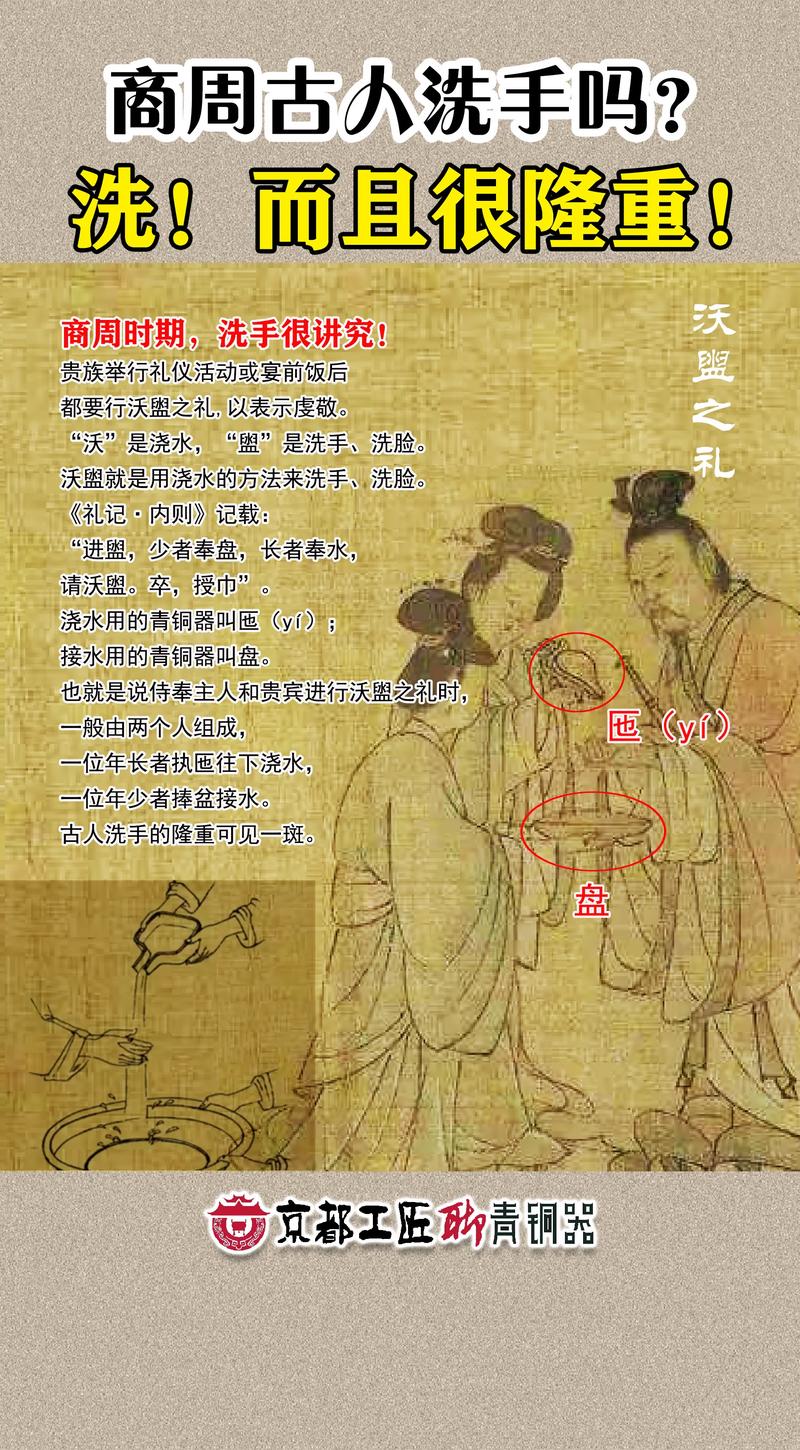 商周古人洗手吗？
洗！而且很隆重！
沃盥之礼
商周时期，洗手很讲究！
贵族举行礼仪活动或宴前饭后
都要行沃盥之礼,以表示虔敬。
“沃”是浇水，“盥”是洗手、洗脸。
沃盥就是用浇水的方法来洗手、洗脸。
《礼记·内则》记载：
“进盥，少者奉盘，长者奉水，
请沃盥。卒，授巾”。
浇水用的青铜器叫匜（yí）；
接水用的青铜器叫盘。
也就是说侍奉主人和贵宾进行沃盥之礼时，
一般由两个人组成，
一位年长者执匜往下浇水，
一位年少者捧盆接水。
古人洗手的隆重可见一斑。
匜（yí）
盘
京都工匠聊青铜器